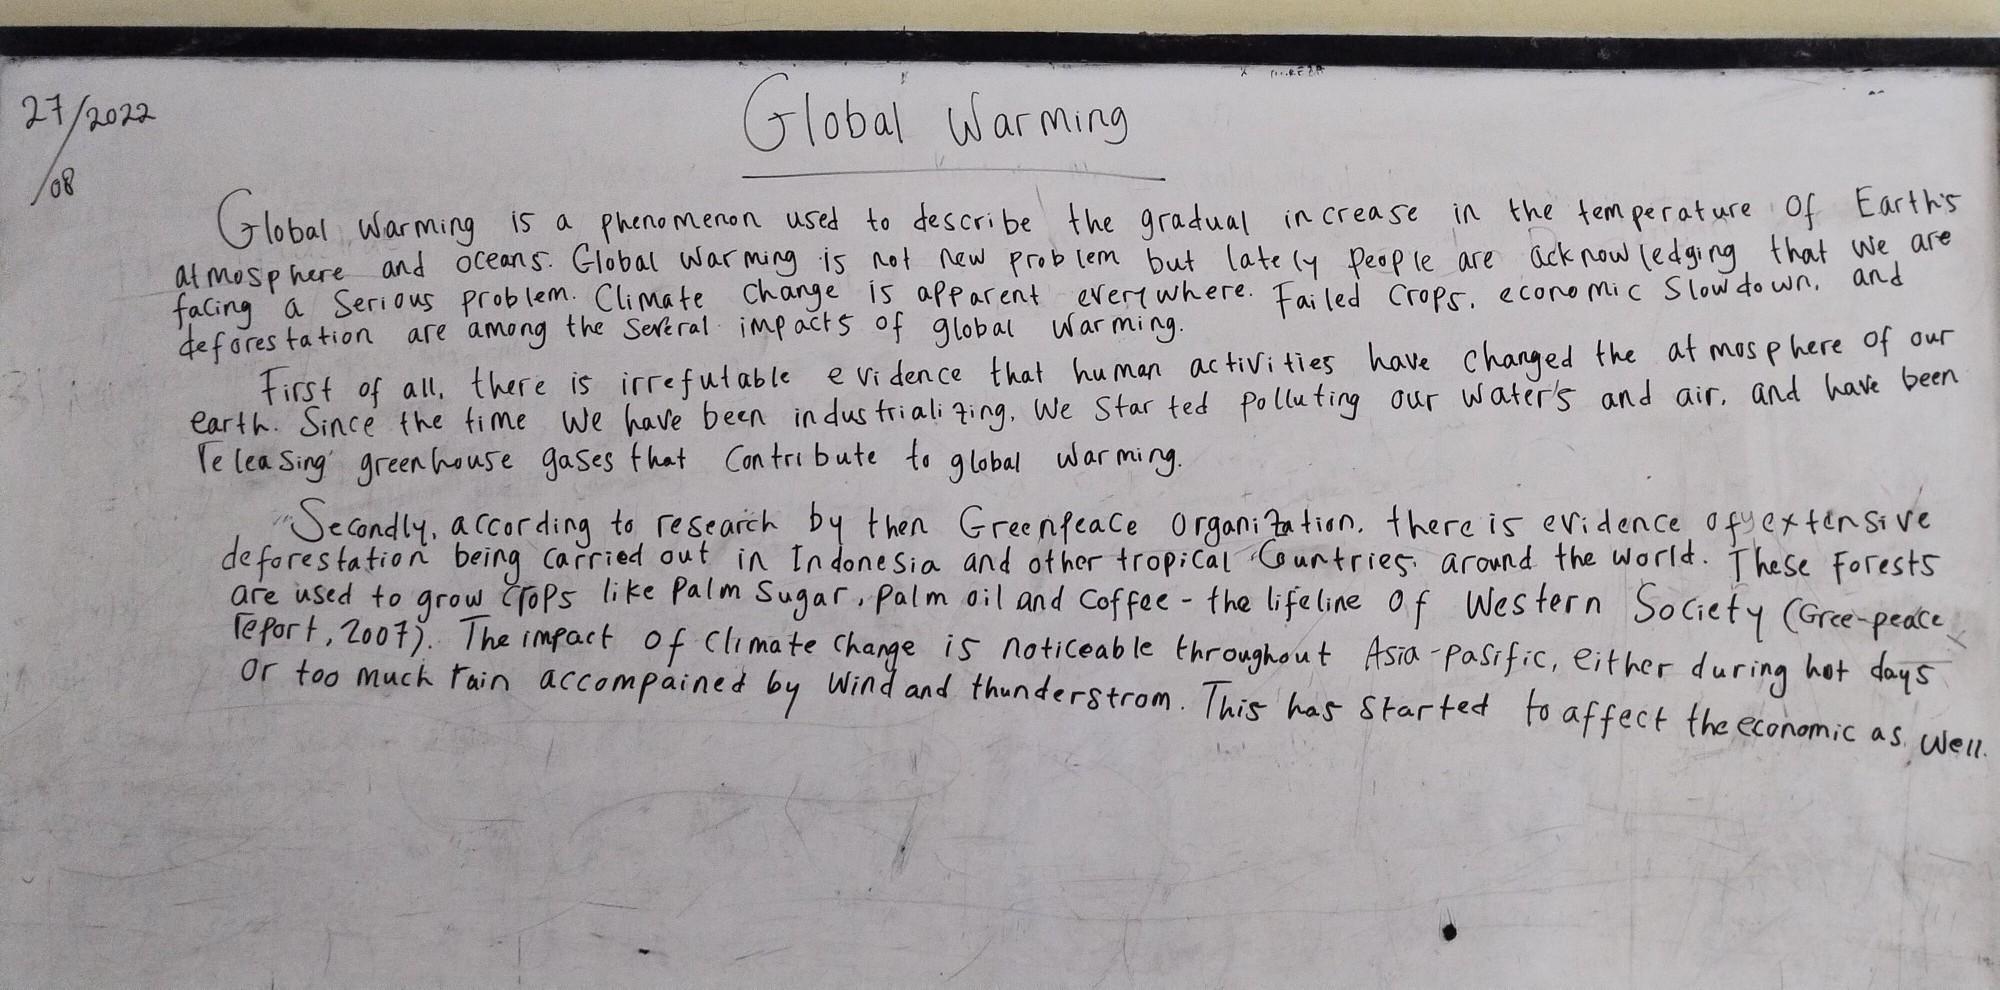 27/2022
/08
Global Warming
Global Warming is a phenomenon used to describe the gradual increase in the temperature of Earth's
atmosphere and oceans. Global Warming is not new problem but lately people are acknowledging that we are
facing a serious problem. Climate change is apparent everywhere. Failed crops, economic slowdown, and
deforestation are among the several impacts of global warming.
First of all, there is irrefutable evidence that human activities have changed the atmosphere of our
earth. Since the time we have been industrializing, we started polluting our water's and air, and have been
releasing greenhouse gases that contribute to global warming.
Secondly, according to research by then Greenpeace Organization, there is evidence of extensive
deforestation being carried out in Indonesia and other tropical Countries around the world. These forests
are used to grow crops like Palm Sugar, Palm oil and coffee - the lifeline of Western Society (Gree-peace
report, 2007). The impact of climate change is noticeable throughout Asia-pasific, either during hot days
or too much rain accompained by wind and thunderstrom. This has started to affect the economic as well.